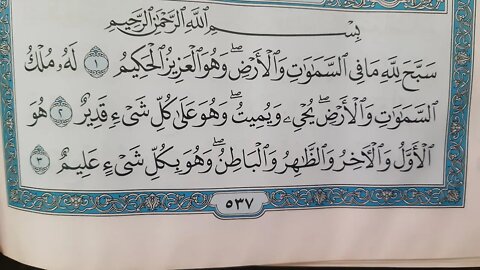 بِسْمِ ٱللَّهِ ٱلرَّحْمَٰنِ ٱلرَّحِيمِ
سَبَّحَ لِلَّهِ مَا فِى ٱلسَّمَٰوَٰتِ وَٱلْأَرْضِ ۖ وَهُوَ ٱلْعَزِيزُ ٱلْحَكِيمُ ١ لَهُۥ مُلْكُ
ٱلسَّمَٰوَٰتِ وَٱلْأَرْضِ ۖ يُحْىِۦ وَيُمِيتُ ۖ وَهُوَ عَلَىٰ كُلِّ شَىْءٍ قَدِيرٌ ٢ هُوَ
ٱلْأَوَّلُ وَٱلْءَاخِرُ وَٱلظَّٰهِرُ وَٱلْبَاطِنُ ۖ وَهُوَ بِكُلِّ شَىْءٍ عَلِيمٌ ٣
٥٣٧